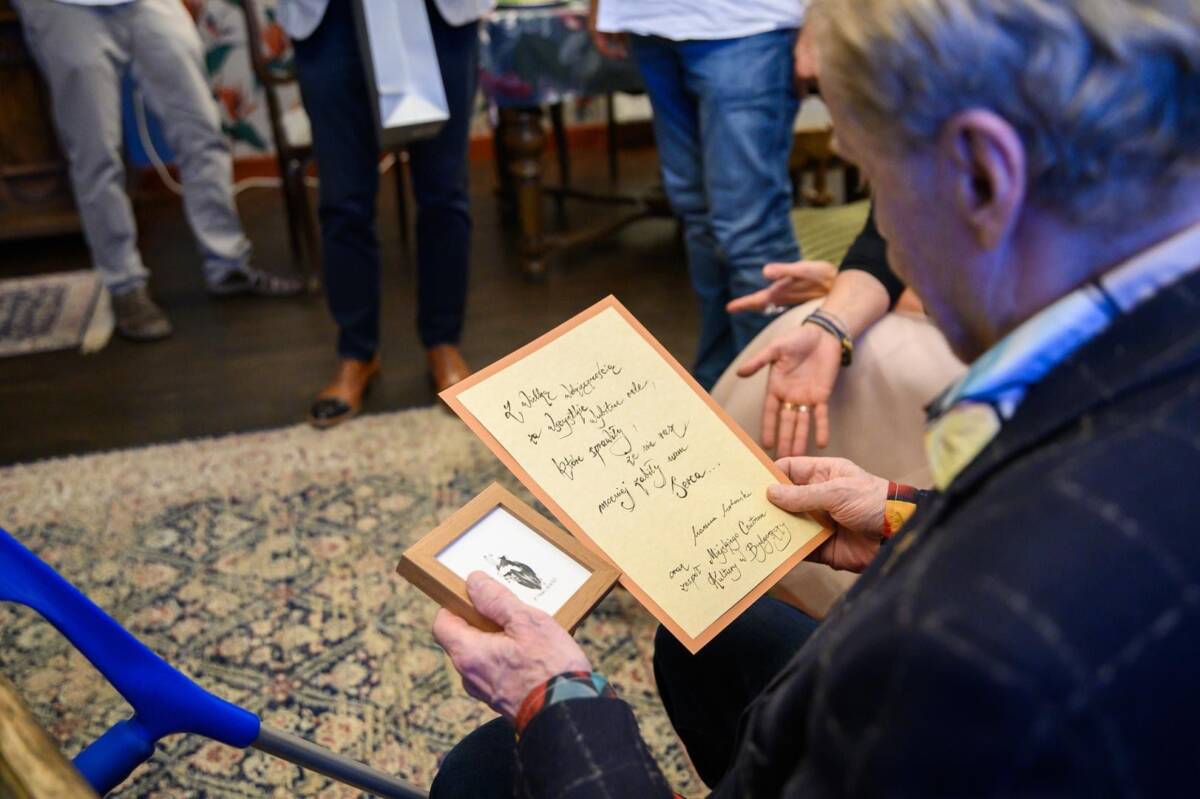 Z wielką wdzięcznością
za wszystkie wybitne role,
które sprawiły,
że nie raz
mocniej zabiły nam
Serca...
oraz
zespół Miejskiego Centrum
Kultury w Bydgoszczy